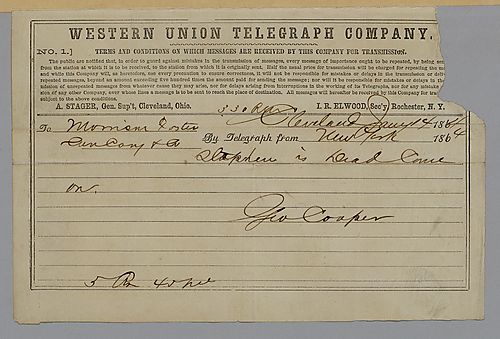 WESTERN UNION TELEGRAPH COMPANY.
NO. 1.] TERMS AND CONDITIONS ON WHICH MESSAGES ARE RECEIVED BY THIS COMPANY FOR TRANSMISSION.
The public are notified that, in order to guard against mistakes in the transmission of messages, every message of importance ought to be repeated, by being sent
from the station at which it is to be received, to the station from which it is originally sent. Half the usual price for transmission will be charged for repeating the
and while this Company will, as heretofore, use every precaution to ensure correctness, it will not be responsible for mistakes or delays in the transmission or
repeated messages, beyond an amount exceeding five hundred times the amount paid for sending the message; nor will it be responsible for mistakes or delays in
mission of unrepeated messages from whatever cause they may arise, nor for delays arising from interruptions in the working of its Telegraphs, nor for any
sion of any other Company, over whose lines a message is to be sent to reach the place of destination. All messages will hereafter be received by this Company for
subject to the above conditions.
A. STAGER, Gen. Sup't, Cleveland, Ohio. I. R. ELWOOD, Sec'y Rochester, N. Y.
Cleveland Jany 14 1864
To Morrison Foster
By Telegraph from New York 1864
Stephen is Dead Come
on.
Geo Cooper